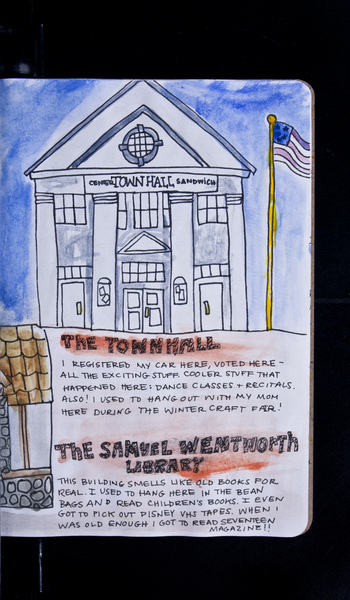 CENTER TOWN HALL SANDWICH
THE TOWN HALL
I REGISTERED MY CAR HERE, VOTED HERE -
ALL THE EXCITING STUFF. COOLER STUFF THAT
HAPPENED HERE: DANCE CLASSES + RECITALS.
ALSO! I USED TO HANG OUT WITH MY MOM
HERE DURING THE WINTER CRAFT FAIR!
THE SAMUEL WENTWORTH
LIBRARY
THIS BUILDING SMELLS LIKE OLD BOOKS FOR
REAL. I USED TO HANG HERE IN THE BEAN
BAGS AND READ CHILDREN'S BOOKS. I EVEN
GOT TO PICK OUT DISNEY VHS TAPES. WHEN I
WAS OLD ENOUGH I GOT TO READ SEVENTEEN
MAGAZINE!!